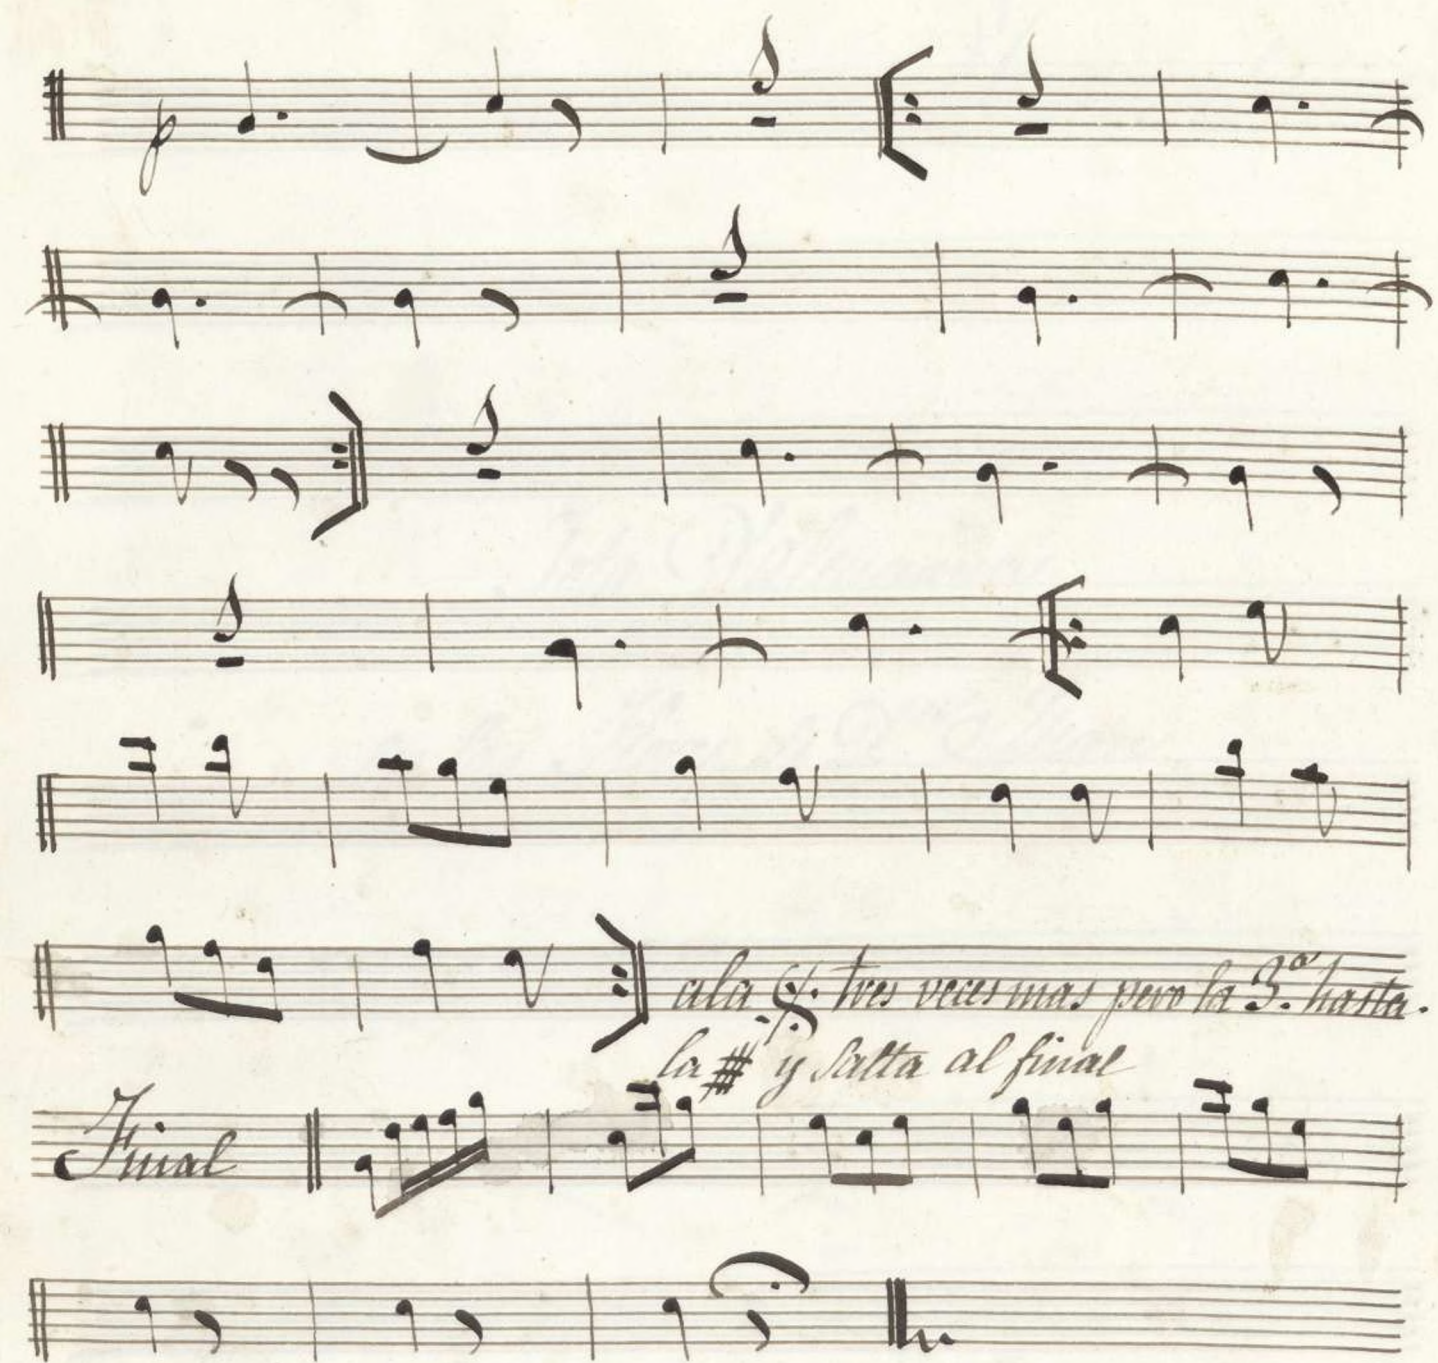 p
a la 𝄋 tres veces mas pero la 3.ª hasta.
la # y salta al final
Final